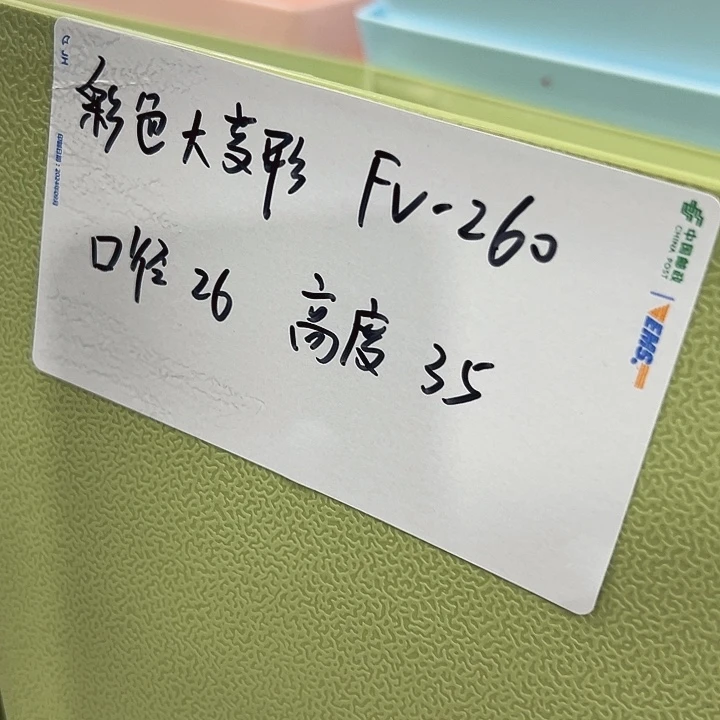 彩色大变形 FV-260
口径 26 高度 35
中国邮政
CHINA POST
EMS
JH